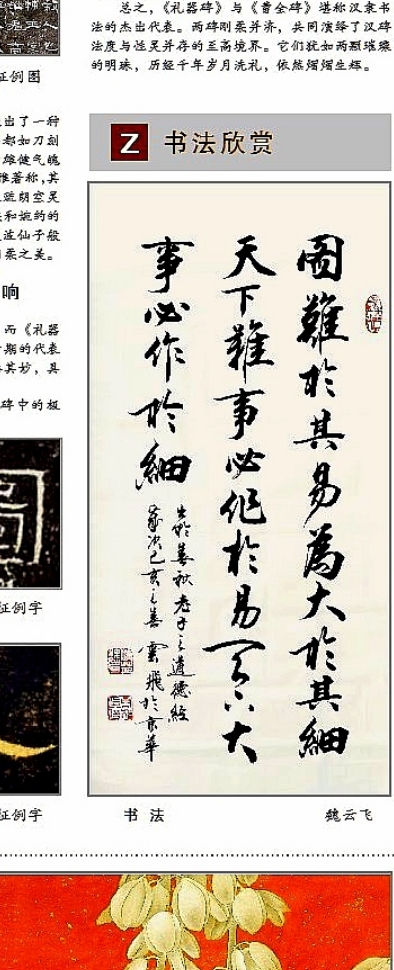 总之，《礼器碑》与《曹全碑》堪称汉隶书
法的杰出代表。两碑刚柔并济，共同演绎了汉碑
法度与性灵并存的至高境界。它们犹如两颗璀璨
的明珠，历经千年岁月洗礼，依然熠熠生辉。
征例图
出了一种
都如刀刻
雄健气魄
雅著称，其
疏朗空灵
和婉约的
波仙子般
柔之美。
响
而《礼器
期的代表
其妙，具
碑中的极
Z 书法欣赏
图难於其易为大於其细
天下難事必作於易天下大
事必作於細
生於春秋老子之道德經
歲次己亥之春雲飛於京華
征例字
征例字
书 法
魏云飞